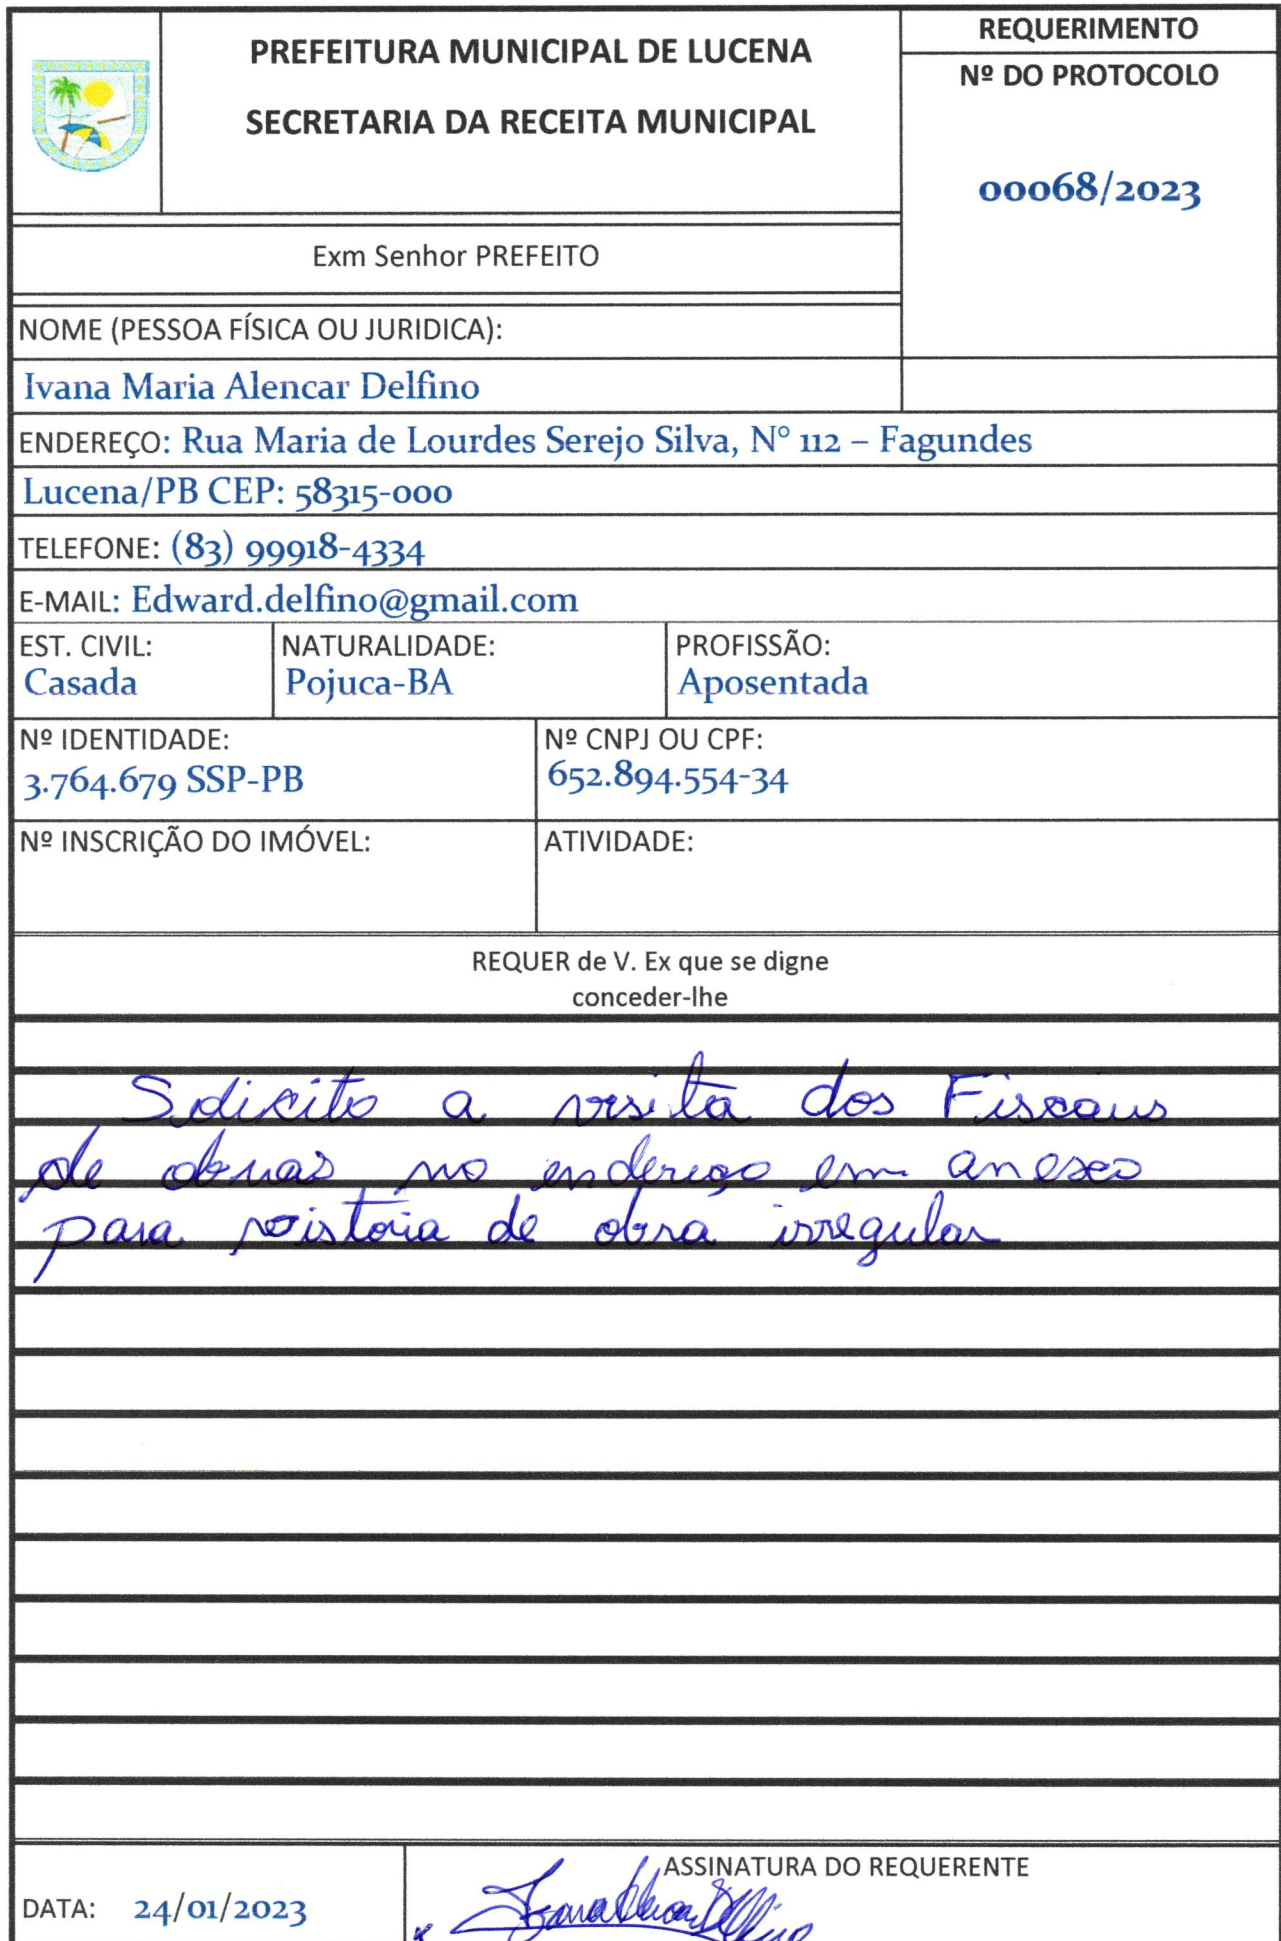 PREFEITURA MUNICIPAL DE LUCENA
SECRETARIA DA RECEITA MUNICIPAL
REQUERIMENTO
Nº DO PROTOCOLO
00068/2023
Exm Senhor PREFEITO
NOME (PESSOA FÍSICA OU JURIDICA):
Ivana Maria Alencar Delfino
ENDEREÇO: Rua Maria de Lourdes Serejo Silva, N° 112 – Fagundes
Lucena/PB CEP: 58315-000
TELEFONE: (83) 99918-4334
E-MAIL: Edward.delfino@gmail.com
EST. CIVIL:
Casada
NATURALIDADE:
Pojuca-BA
PROFISSÃO:
Aposentada
Nº IDENTIDADE:
3.764.679 SSP-PB
Nº CNPJ OU CPF:
652.894.554-34
Nº INSCRIÇÃO DO IMÓVEL:
ATIVIDADE:
REQUER de V. Ex que se digne
conceder-lhe
Solicito a visita dos Fiscais
de obras no endereço em anexo
para vistoria de obra irregular
DATA: 24/01/2023
ASSINATURA DO REQUERENTE